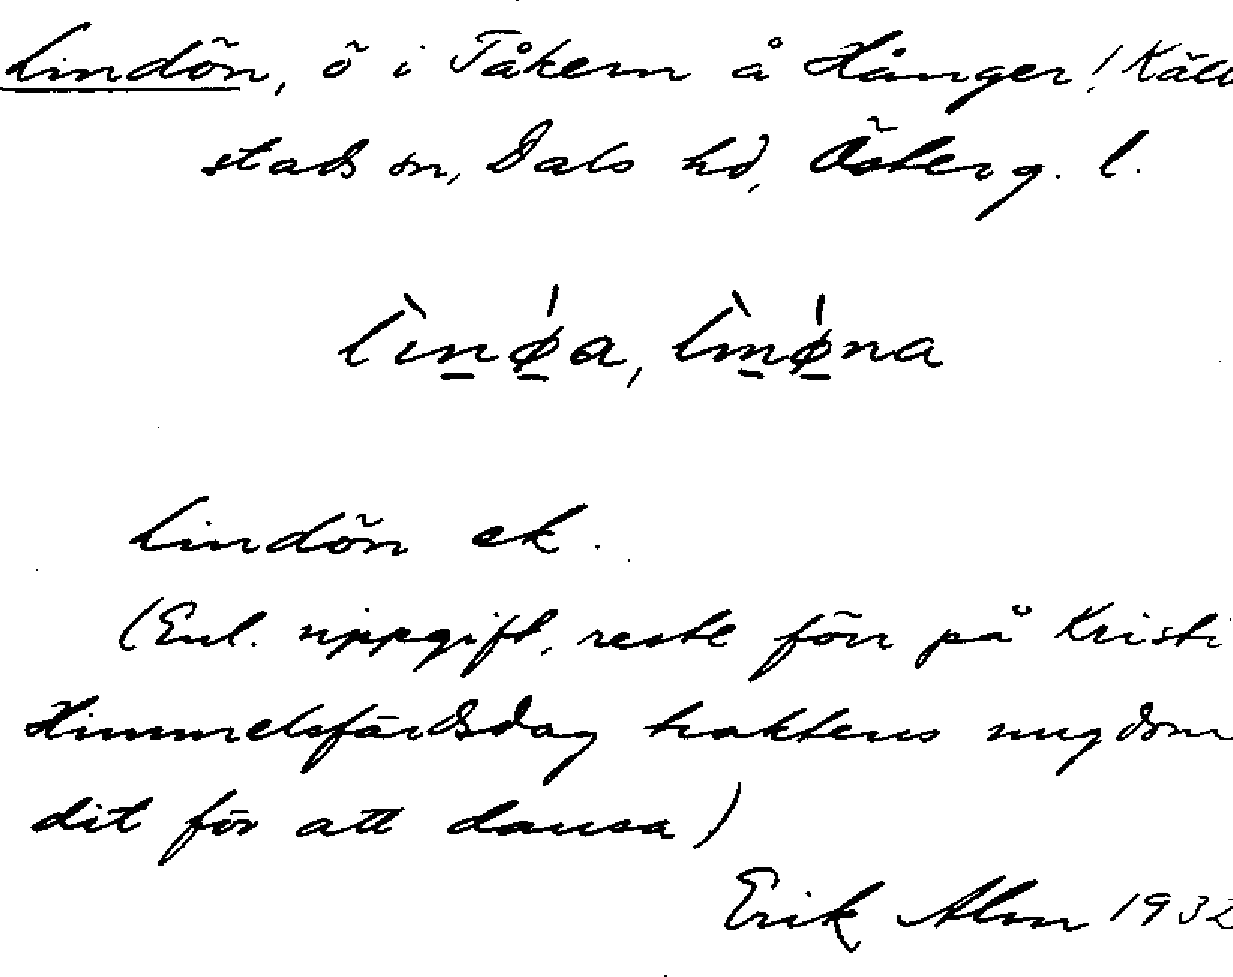 Lindön, ö i Tåkern å Hånger, Käll
stads sn, Dals hd, Österg. l.
lìnǿa, lìnǿna
Lindön ek.
(Enl. uppgift, reste förr på Kristi
Himmelsfärdsdag traktens ungdom
dit för att dansa)
Erik Alm 1932